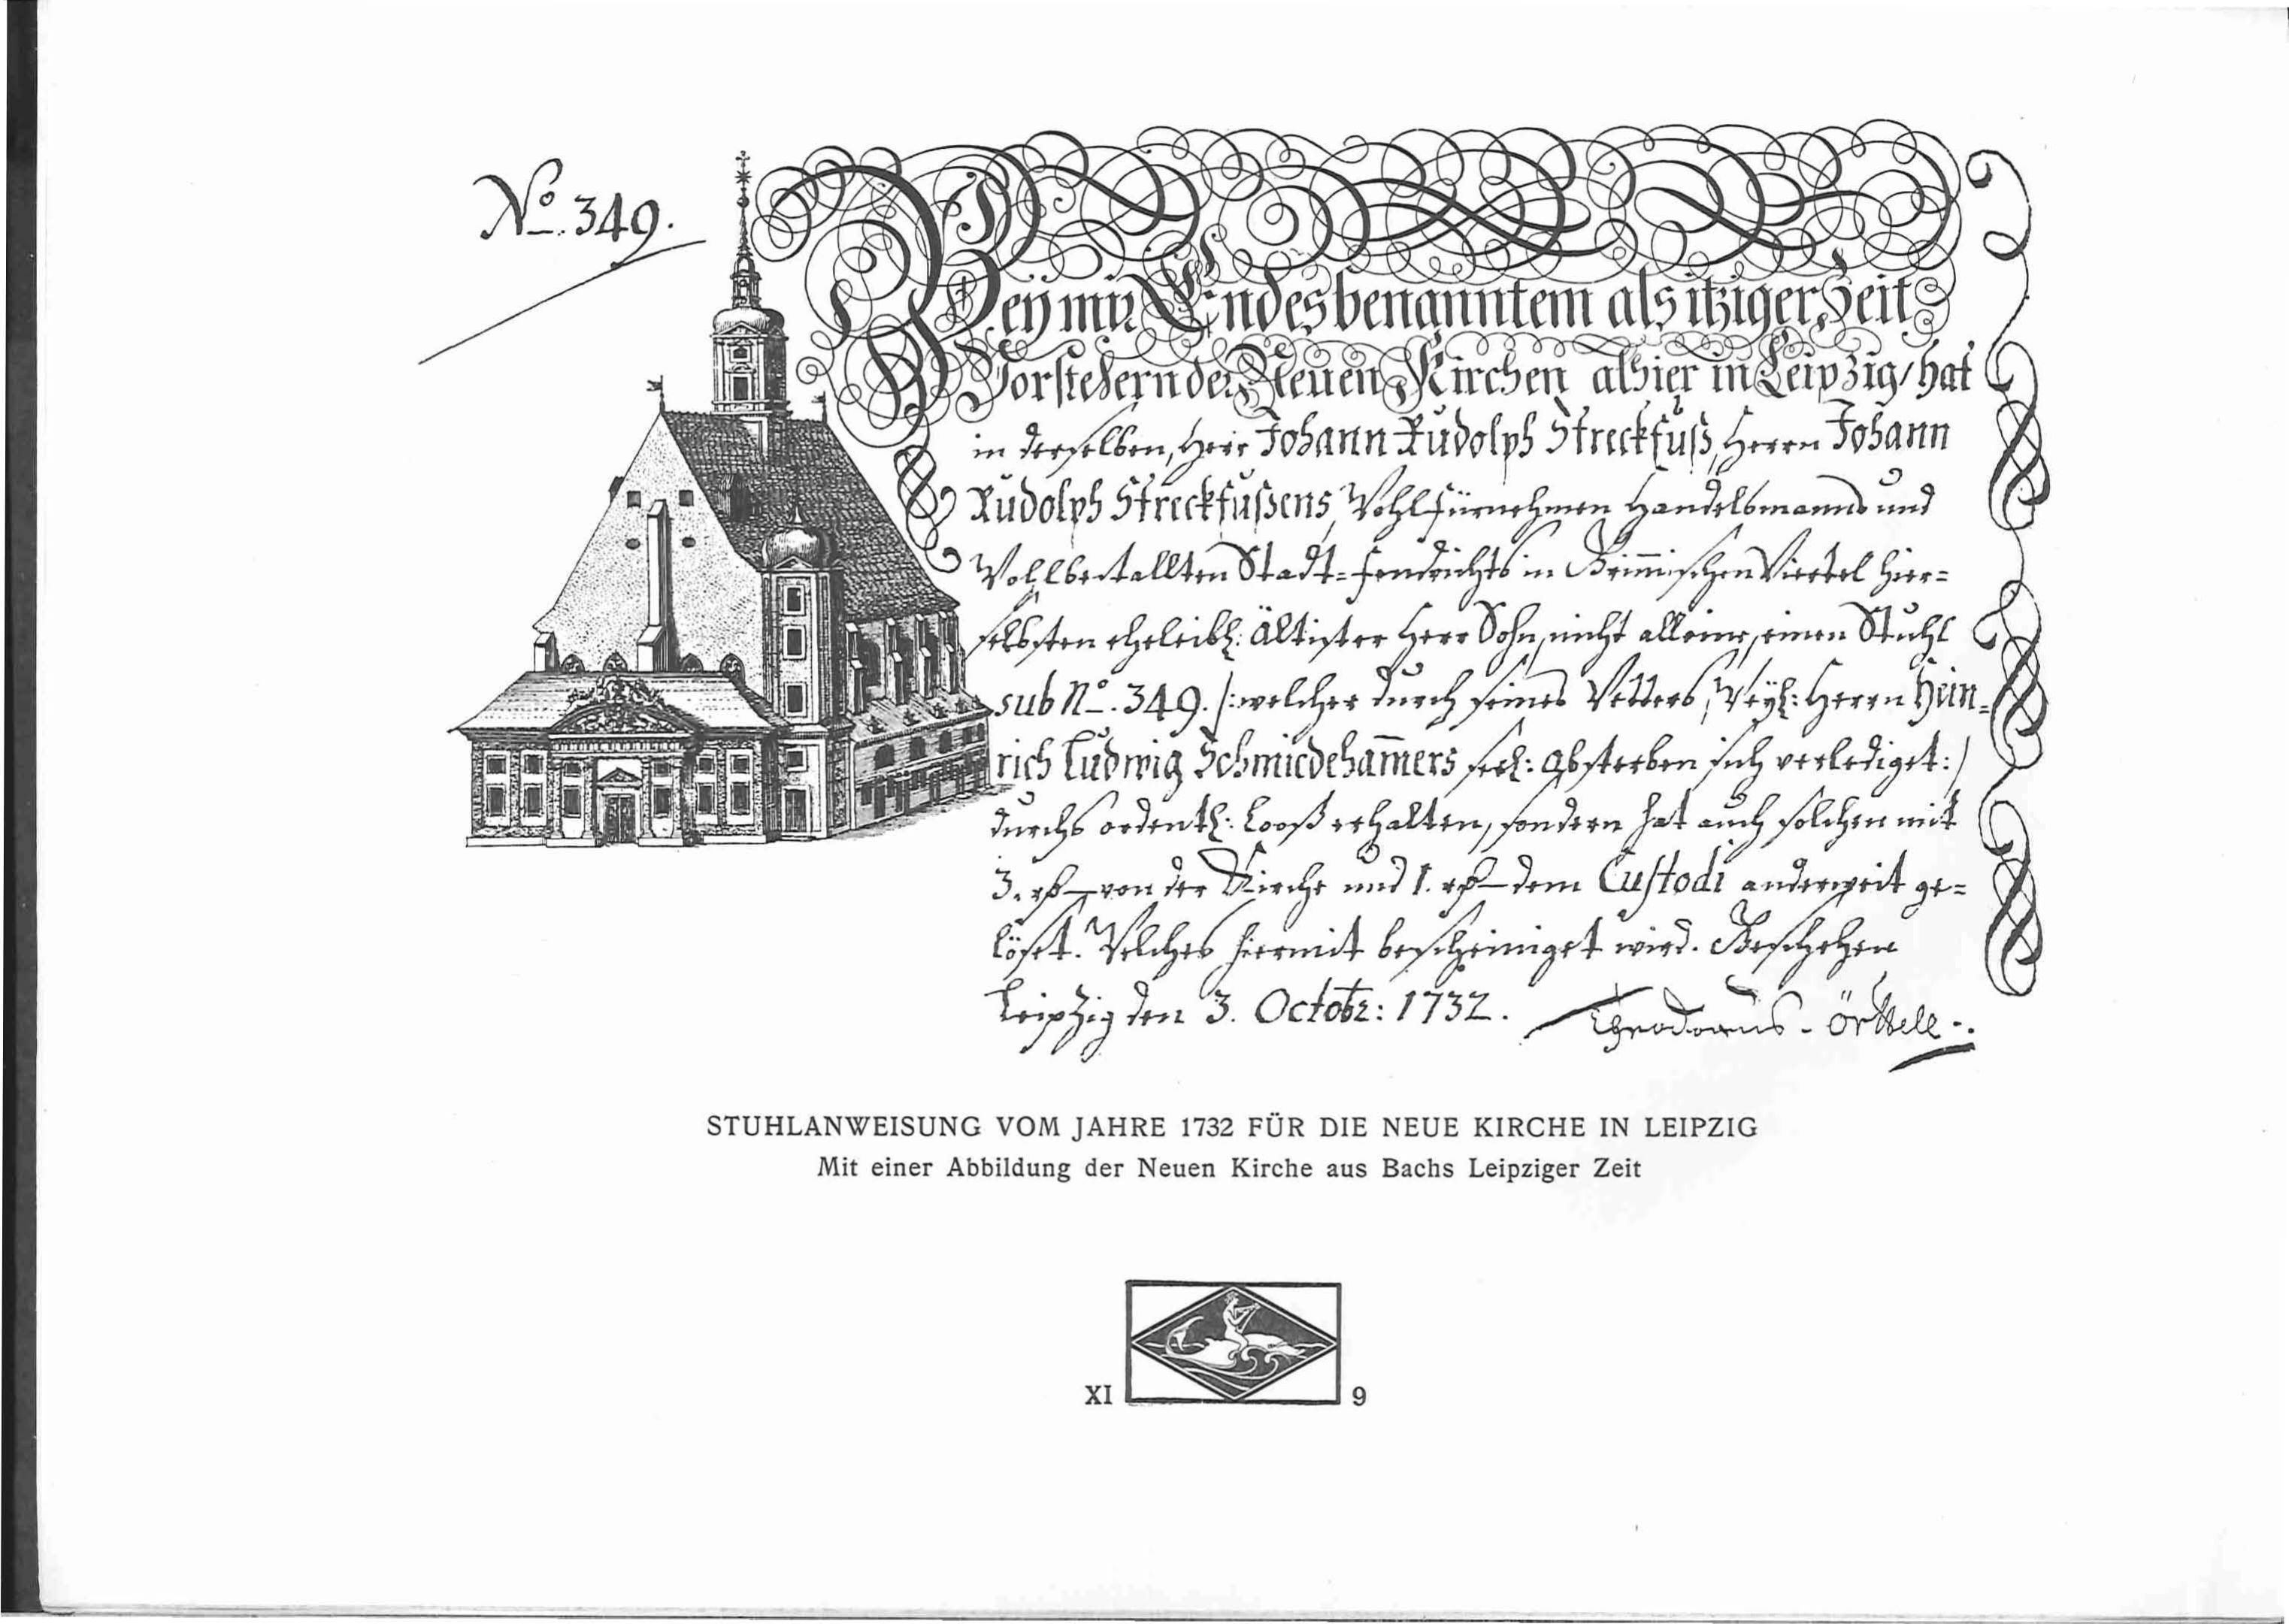 No. 349.
Bey mir Endesbenanntem als itziger Zeit
Vorstehern der Neuen Kirchen alhier in Leipzig / hat
in derselben, Herr Johann Rudolph Streckfuß, Herrn Johann
Rudolph Streckfußens, Wohlfürnehmen Handelsmanns und
Wohlbestallten Stadt-Fendrichts in Grimmischen Viertel hier=
selbsten eheleibl: Ältister Herr Sohn, nicht alleine, einen Stuhl
sub No. 349. /: welcher durch seines Vetters, Weyl: Herrn Hein=
rich Ludwig Schmiedehammers seel: Absterben sich verlediget: /
durchs ordentl: Looß erhalten, sondern hat auch solchen mit
3. rß von der Kirche und 1. rß dem Custodi anderweit ge=
löset. Welches hiermit bescheiniget wird. Geschehen
Leipzig den 3. Octobr: 1732. Theodorus Örttell
STUHLANWEISUNG VOM JAHRE 1732 FÜR DIE NEUE KIRCHE IN LEIPZIG
Mit einer Abbildung der Neuen Kirche aus Bachs Leipziger Zeit
XI 9